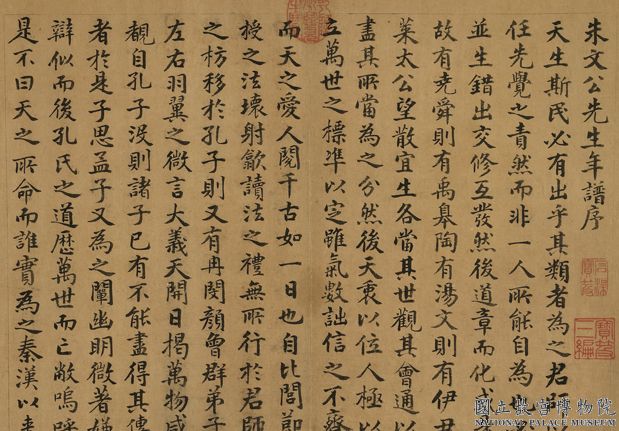 朱文公先生年譜序
天生斯民必有出乎其類者為之君師
任先覺之責然而非一人所能自為也
並生錯出交修互發然後道章而化成
故有堯舜則有禹皋陶有湯文則有伊尹
萊太公望散宜生各當其世觀其會通以
盡其所當為之分然後天衷以位人極以
立萬世之標準以定雖氣數詘信之不齊
而天之愛人閱千古如一日也自比閭節
授之法壞射歙讀法之禮無所行於君師
之枋移於孔子則又有冉閔顏曾群弟子
左右羽翼之微言大義天開日揭萬物咸
覩自孔子沒則諸子已有不能盡得其傳
者於是子思孟子又為之闡幽明微著嫌
辯似而後孔氏之道歷萬世而亡敝嗚呼
是不曰天之所命而誰實為之秦漢以來
寶笈三編
國立故宮博物院
NATIONAL PALACE MUSEUM